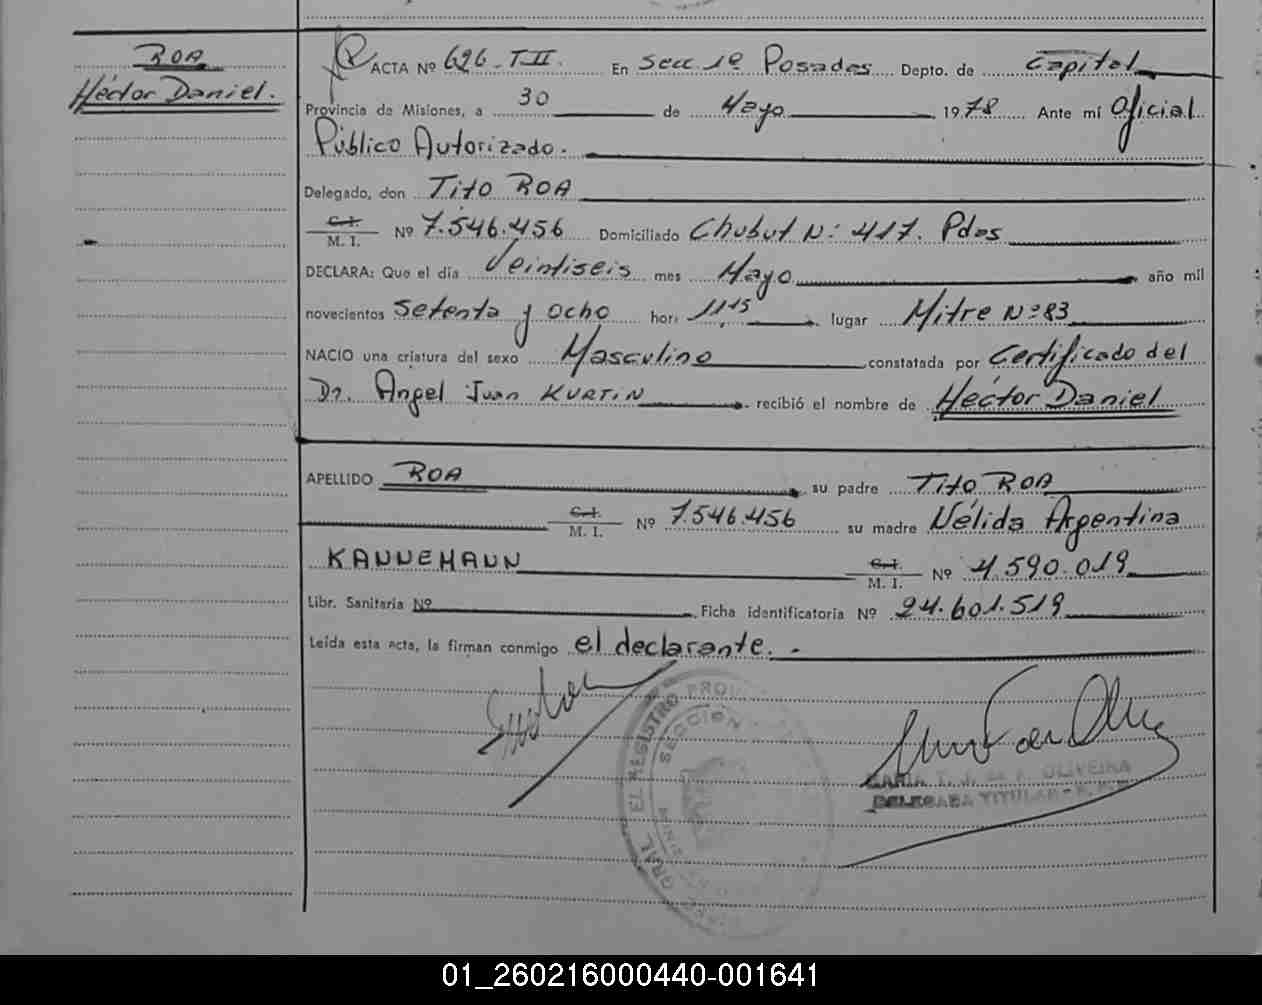 ROA
Héctor Daniel.
ACTA Nº 626-T-II. En Secc 1º Posadas Depto. de Capital
Provincia de Misiones, a 30 de Mayo 1978 Ante mí Oficial
Público Autorizado.
Delegado, don Tito ROA
C.I.
M. I. Nº 7.546.456 Domiciliado Chubut Nº 417. Pdas
DECLARA: Que el día Veintiseis mes Mayo año mil
novecientos Setenta y ocho hora 11,15 lugar Mitre Nº 83
NACIO una criatura del sexo Masculino constatada por Certificado del
Dr. Angel Juan KURTIN recibió el nombre de Héctor Daniel
APELLIDO ROA su padre Tito ROA
C.I.
M. I. Nº 7.546.456 su madre Nélida Argentina
KANNEMANN C.I.
M. I. Nº 4.590.019
Libr. Sanitaria Nº Ficha identificatoria Nº 24.601.519
Leída esta acta, la firman conmigo el declarante.-
GRAL EL REGISTRO PROVI
SECCION
MARIA T. J. de F. OLIVEIRA
DELEGADA TITULAR
01_260216000440-001641